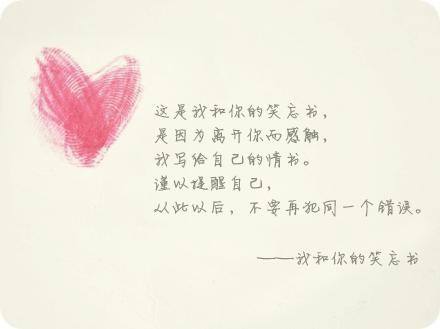 这是我和你的笑忘书，
是因为离开你而感触，
我写给自己的情书。
谨以提醒自己，
从此以后，不要再犯同一个错误。
——我和你的笑忘书